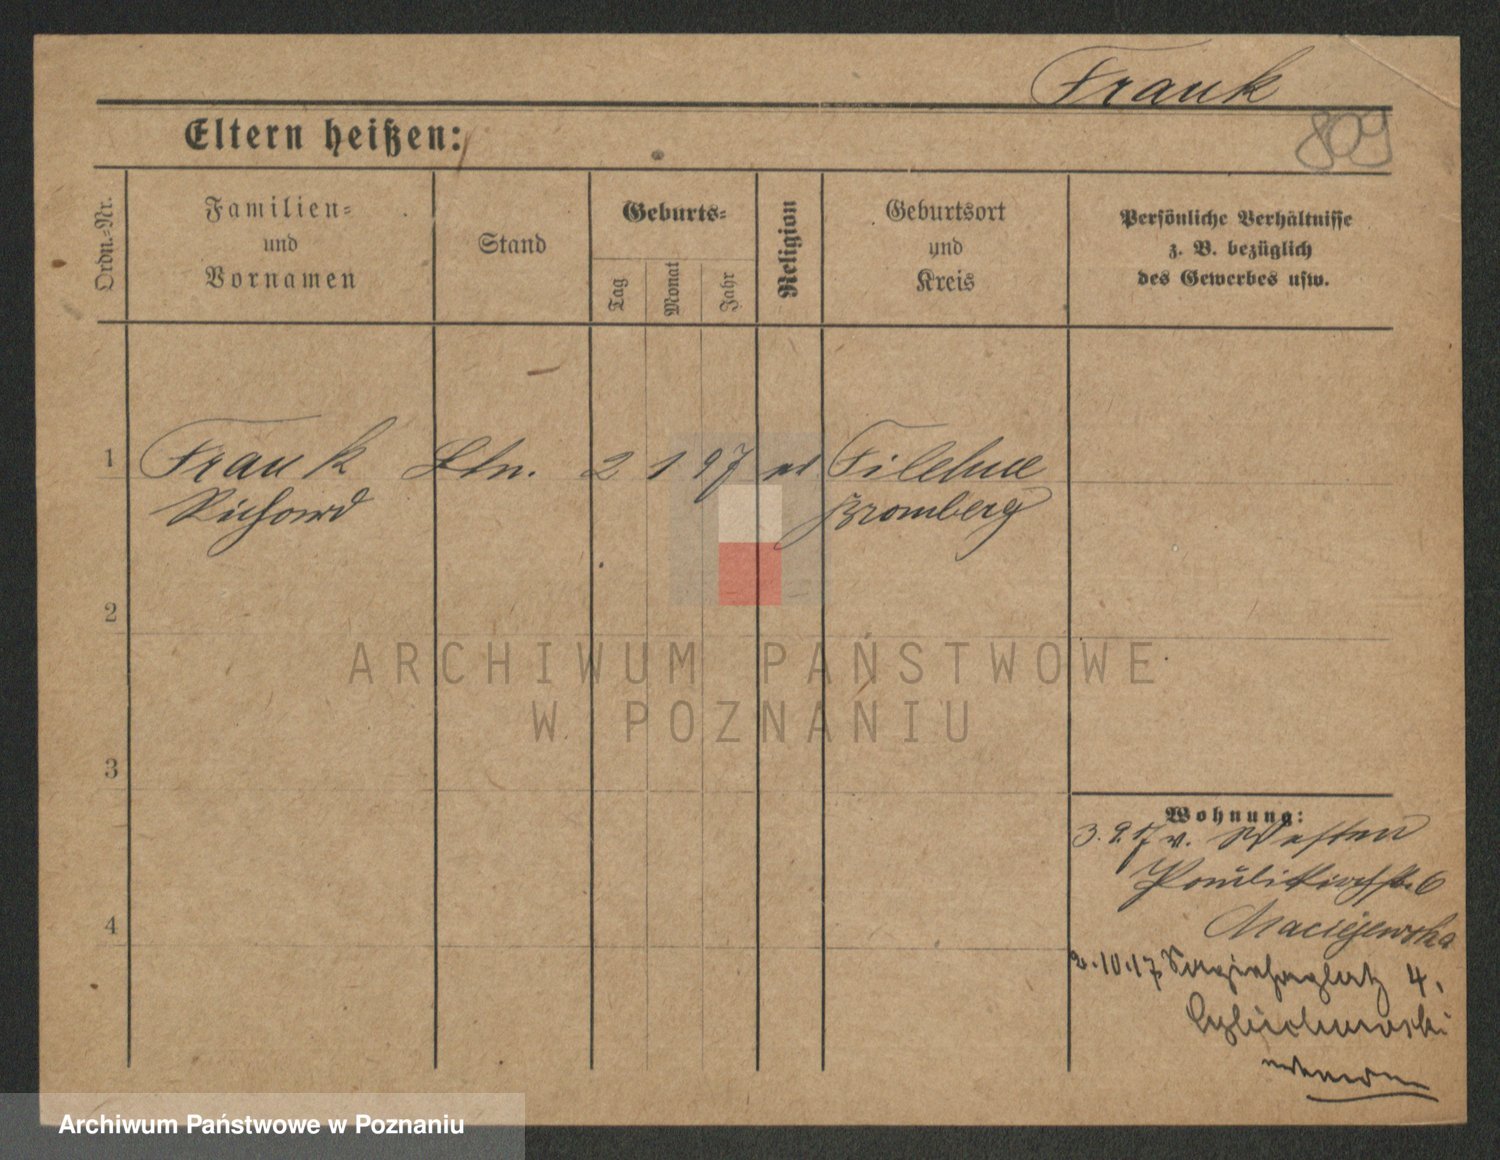 Frank
809
Eltern heißen:
Ordn.=Nr.
Familien=
und
Vornamen
Stand
Geburts=
Tag
Monat
Jahr
Religion
Geburtsort
und
Kreis
Persönliche Verhältnisse
z. B. bezüglich
des Gewerbes usw.
1
Frank
Richard
Ltn.
2 1 97
Filehne
Bromberg
2
ARCHIWUM PAŃSTWOWE
W POZNANIU
3
Wohnung:
3. 9. 17 v. Westen
Paulikirchstr. 6
Maciejewska
4
2.10.17 Sapiehaplatz 4.
Archiwum Państwowe w Poznaniu